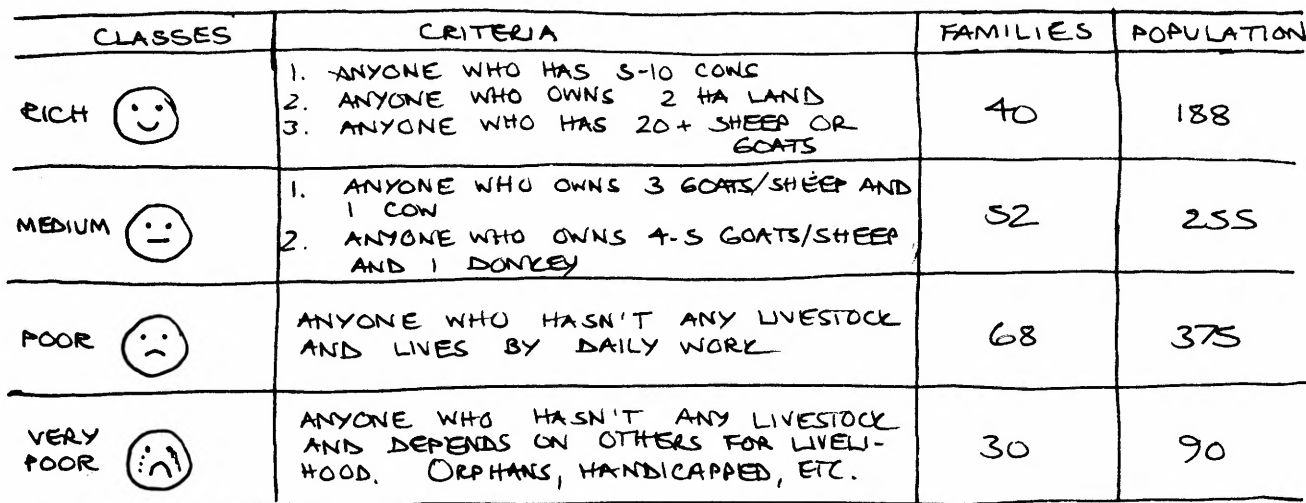 CLASSES CRITERIA FAMILIES POPULATION
RICH 1. ANYONE WHO HAS 5-10 COWS 40 188
2. ANYONE WHO OWNS 2 HA LAND
3. ANYONE WHO HAS 20+ SHEEP OR
GOATS
MEDIUM 1. ANYONE WHO OWNS 3 GOATS/SHEEP AND 52 255
1 COW
2. ANYONE WHO OWNS 4-5 GOATS/SHEEP
AND 1 DONKEY
POOR ANYONE WHO HASN'T ANY LIVESTOCK 68 375
AND LIVES BY DAILY WORK
VERY ANYONE WHO HASN'T ANY LIVESTOCK 30 90
POOR AND DEPENDS ON OTHERS FOR LIVELI-
HOOD. ORPHANS, HANDICAPPED, ETC.